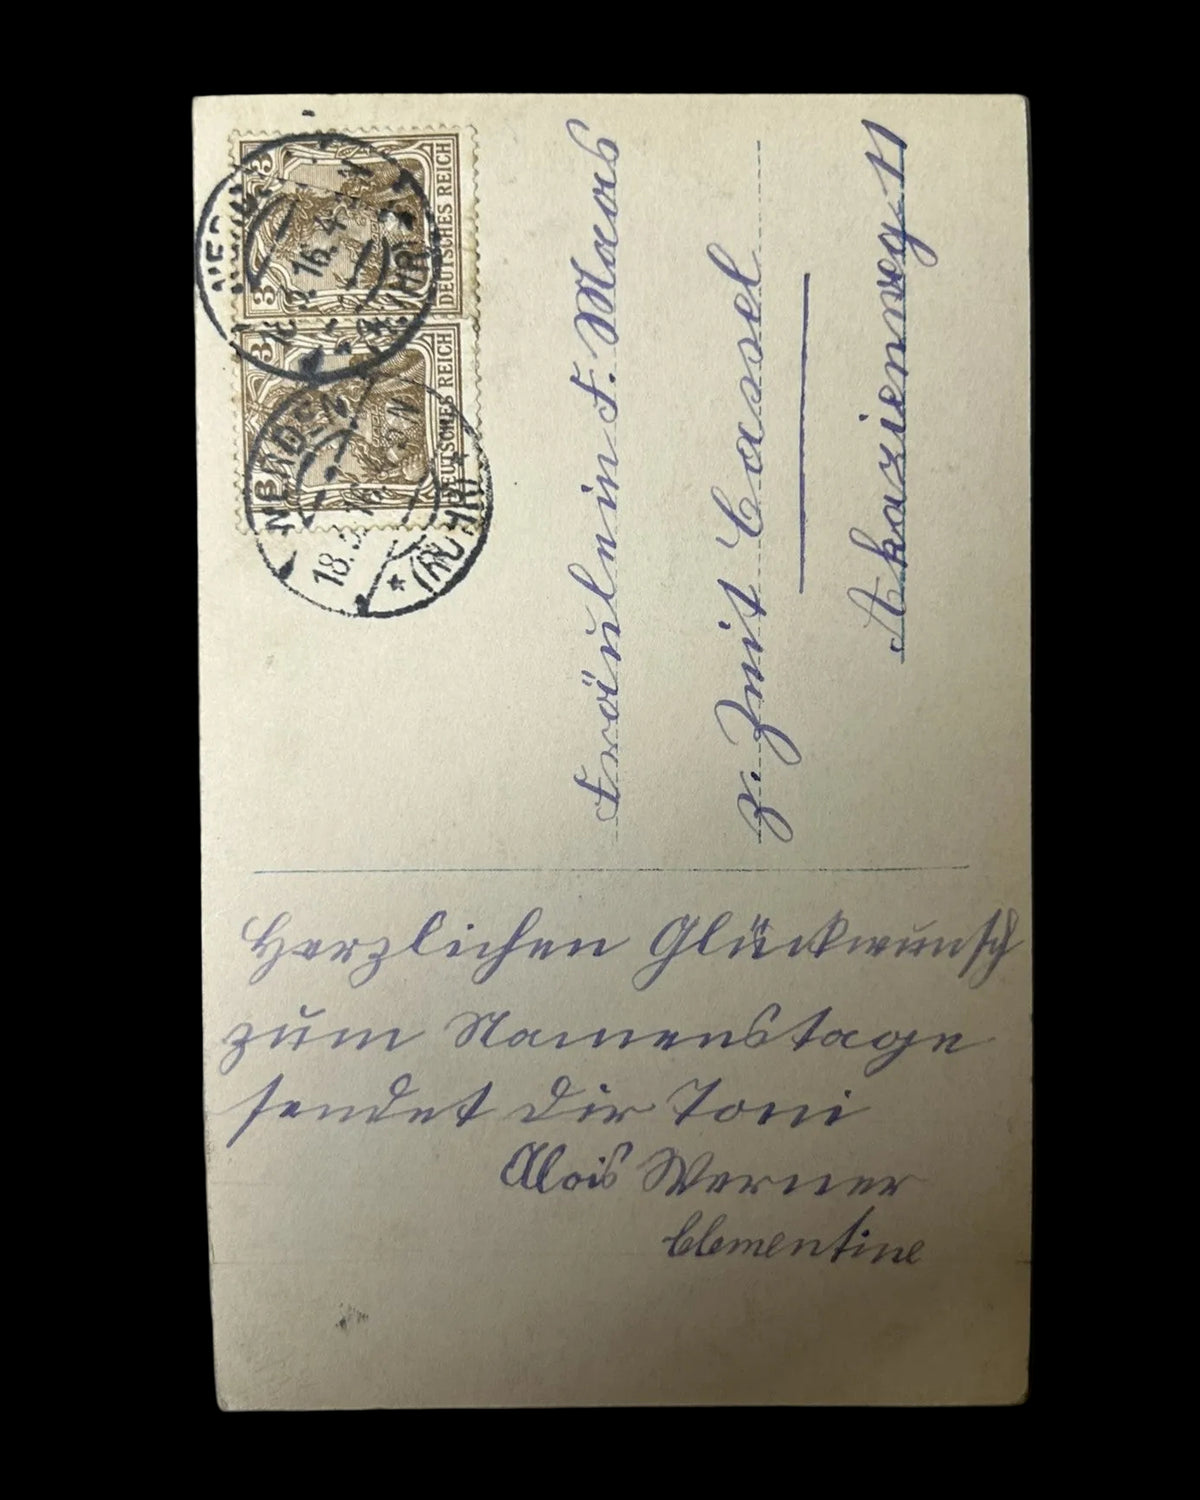 DEUTSCHES REICH
3 3
DEUTSCHES REICH
3
NEHEIM
18.3.16. 4-5 N
(RUHR)
18.3.16. 4-5 N
(RUHR)
Fräulein F. Maas
z. Zeit Cassel
Akazienweg 11
Herzlichen Glückwunsch
zum Namenstage
sendet Dir Toni
Alois Werner
Clementine